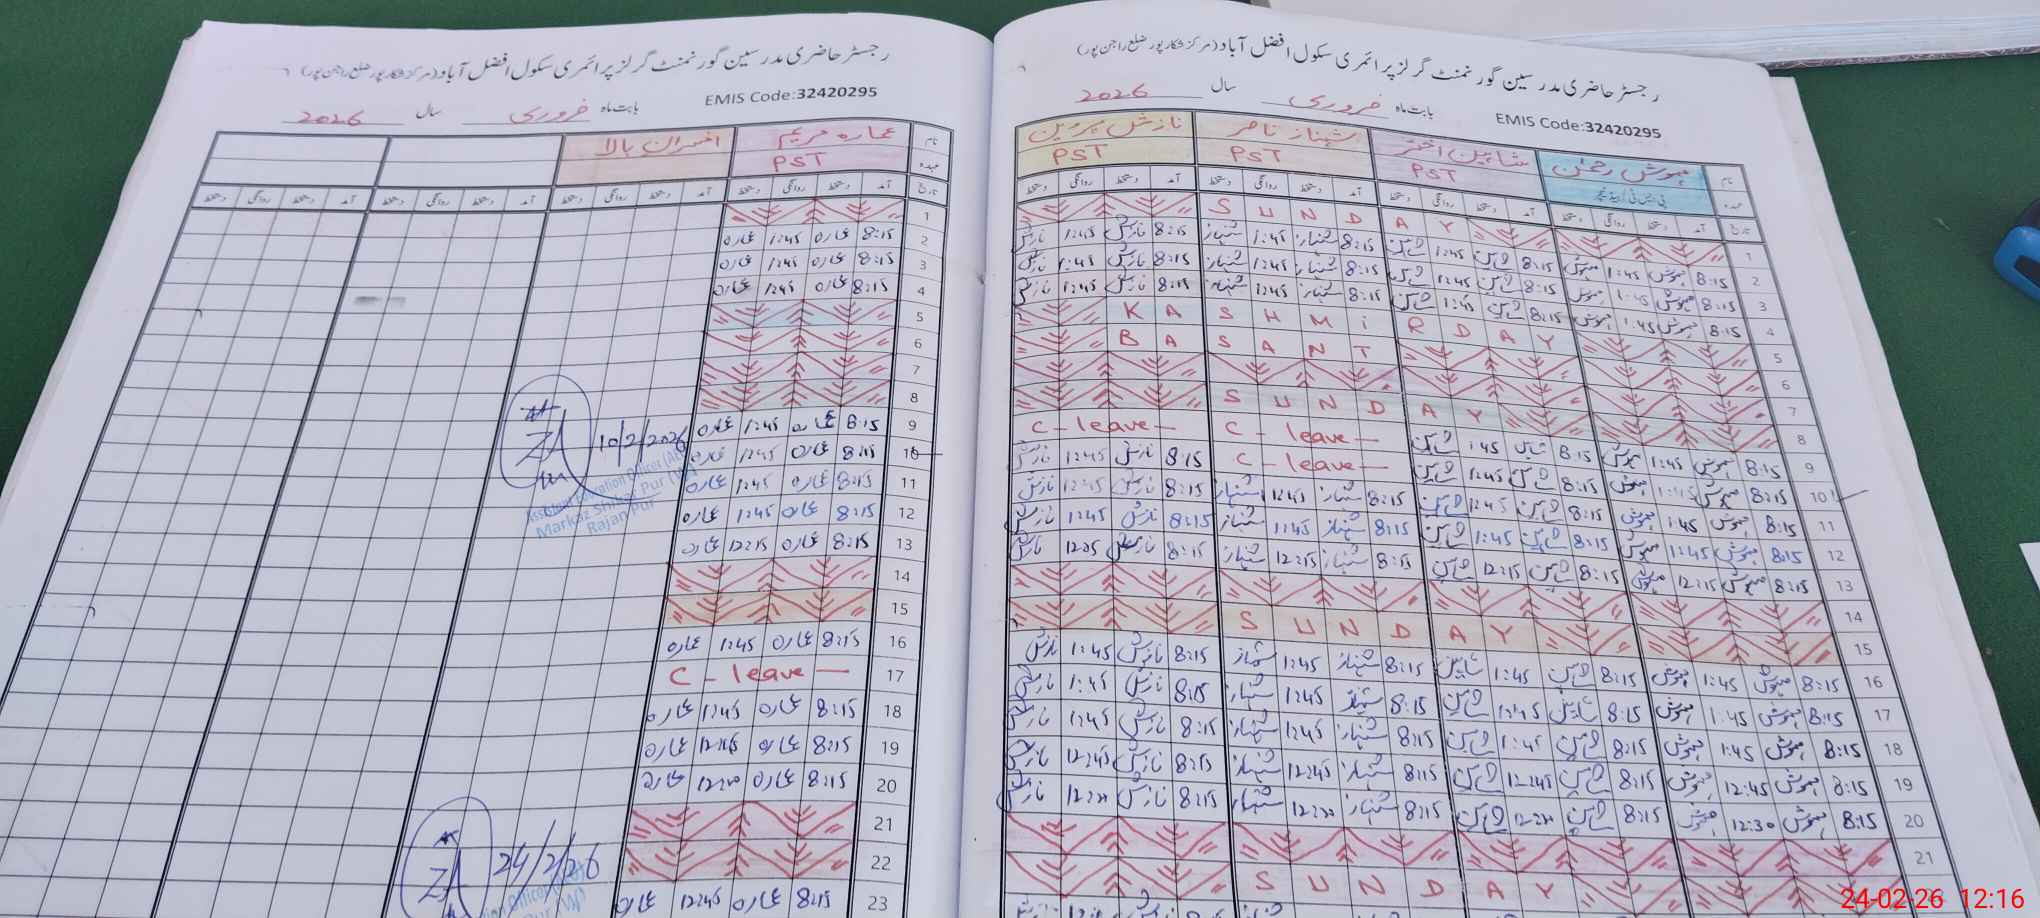 رجسٹر حاضری مدرسین گورنمنٹ گرلز پرائمری سکول افضل آباد (مرکز شکارپور ضلع راجن پور)
EMIS Code:32420295
بابت ماہ فروری سال 2026
نام عمارہ مریم افسران بالا
عہدہ PST
تاریخ آمد دستخط روانگی دستخط آمد دستخط روانگی دستخط آمد دستخط روانگی دستخط آمد دستخط روانگی دستخط
1
2 8:15 عمارہ 1:45 عمارہ
3 8:15 عمارہ 1:45 عمارہ
4 8:15 عمارہ 1:45 عمارہ
5
6
7
8
9 8:15 عمارہ 1:45 عمارہ
10 8:15 عمارہ 1:45 عمارہ
10/2/2026
Assistant Education Officer
Markaz Shikar Pur (W)
Rajan Pur
11 8:15 عمارہ 1:45 عمارہ
12 8:15 عمارہ 1:45 عمارہ
13 8:15 عمارہ 12:15 عمارہ
14
15
16 8:15 عمارہ 1:45 عمارہ
17 C - leave —
18 8:15 عمارہ 1:45 عمارہ
19 8:15 عمارہ 12:45 عمارہ
20 8:15 عمارہ عمارہ
21
22
24/2/26
23 8:15 عمارہ 12:45 عمارہ
رجسٹر حاضری مدرسین گورنمنٹ گرلز پرائمری سکول افضل آباد (مرکز شکارپور ضلع راجن پور)
EMIS Code:32420295
بابت ماہ فروری سال 2026
نام مہوش رحمٰن شاہین اختر شہناز ناصر نازش پروین
عہدہ پی ایس ٹی / ہیڈ ٹیچر PST PST PST
تاریخ آمد دستخط روانگی دستخط آمد دستخط روانگی دستخط آمد دستخط روانگی دستخط آمد دستخط روانگی دستخط
1 SUNDAY
2 8:15 مہوش 1:45 مہوش 8:15 شاہین 1:45 شاہین 8:15 شہناز 1:45 شہناز 8:15 نازش 1:45 نازش
3 8:15 مہوش 1:45 مہوش 8:15 شاہین 1:45 شاہین 8:15 شہناز 1:45 شہناز 8:15 نازش 1:45 نازش
4 8:15 مہوش 1:45 مہوش 8:15 شاہین 1:45 شاہین 8:15 شہناز 1:45 شہناز 8:15 نازش 1:45 نازش
5 KASHMiR DAY
6 BASANT
7
8 SUNDAY
9 8:15 مہوش 1:45 مہوش 8:15 شاہین 1:45 شاہین C - leave — C - leave —
10 8:15 مہوش 1:45 مہوش 8:15 شاہین 12:45 شاہین C - leave — 8:15 نازش 12:45 نازش
11 8:15 مہوش 1:45 مہوش 8:15 شاہین 12:45 شاہین 8:15 شہناز شہناز 8:15 نازش 12:45 نازش
12 8:15 مہوش 1:45 مہوش 8:15 شاہین 1:45 شاہین 8:15 شہناز 1:45 شہناز 8:15 نازش 1:45 نازش
13 8:15 مہوش 12:15 مہوش 8:15 شاہین 12:15 شاہین 8:15 شہناز 12:15 شہناز 8:15 نازش نازش
14
15 SUNDAY
16 8:15 مہوش 1:45 مہوش 8:15 شاہین 1:45 شاہین 8:15 شہناز 1:45 شہناز 8:15 نازش 1:45 نازش
17 8:15 مہوش 1:45 مہوش 8:15 شاہین شاہین 8:15 شہناز 1:45 شہناز 8:15 نازش 1:45 نازش
18 8:15 مہوش 1:45 مہوش 8:15 شاہین 1:45 شاہین 8:15 شہناز 1:45 شہناز 8:15 نازش 1:45 نازش
19 8:15 مہوش 12:45 مہوش 8:15 شاہین 12:45 شاہین 8:15 شہناز 12:45 شہناز 8:15 نازش 12:45 نازش
20 8:15 مہوش 12:30 مہوش 8:15 شاہین شاہین 8:15 شہناز شہناز 8:15 نازش نازش
21
SUNDAY
24-02-26 12:16